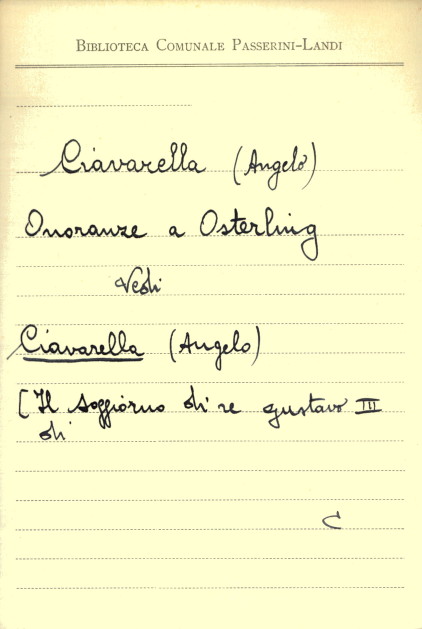 BIBLIOTECA COMUNALE PASSERINI-LANDI
Ciavarella (Angelo)
Onoranze a Osterling
Vedi
Ciavarella (Angelo)
[Il soggiorno di re gustavo III
di
C